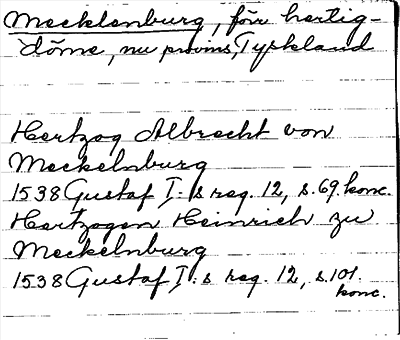 Mecklenburg, förr hertig-
döme, nu provins, Tyskland
Hertzog Albrecht von
Meckelnburg
1538 Gustaf I:s reg. 12, s. 69. konc.
Hertzogen Heinrich zu
Meckelnburg
1538 Gustaf I:s reg. 12, s. 101.
konc.